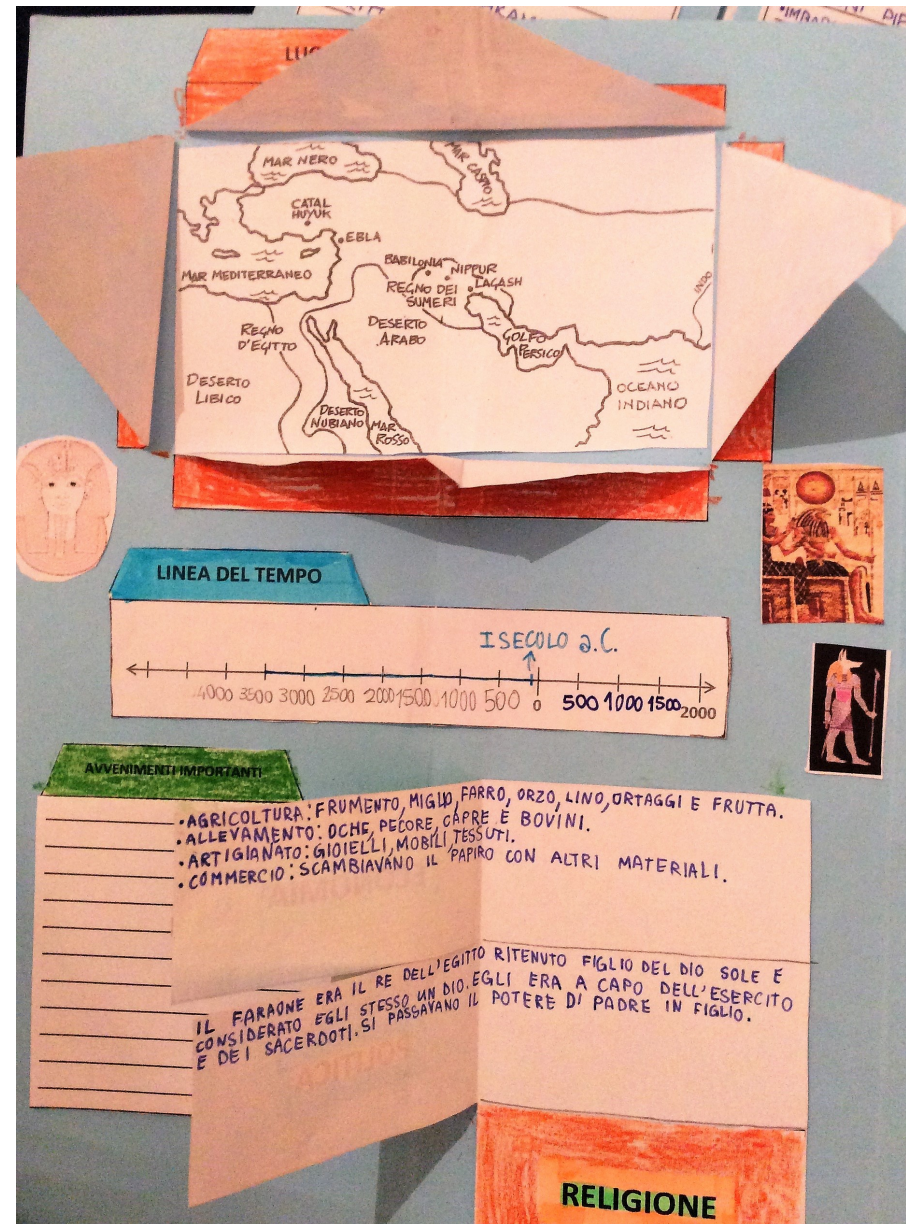 LUO
MAR NERO
MAR CASPIO
CATAL
HUYUK
EBLA
MAR MEDITERRANEO
BABILONIA
NIPPUR
LAGASH
REGNO DEI
SUMERI
INDO
REGNO
D'EGITTO
DESERTO
ARABO
GOLFO
PERSICO
DESERTO
LIBICO
OCEANO
INDIANO
DESERTO
NUBIANO
MAR
ROSSO
LINEA DEL TEMPO
I SECOLO a.C.
4000 3500 3000 2500 2000 1500 1000 500 0 500 1000 1500 2000
AVVENIMENTI IMPORTANTI
• AGRICOLTURA: FRUMENTO, MIGLIO, FARRO, ORZO, LINO, ORTAGGI E FRUTTA.
• ALLEVAMENTO: OCHE, PECORE, CAPRE E BOVINI.
• ARTIGIANATO: GIOIELLI, MOBILI, TESSUTI.
• COMMERCIO: SCAMBIAVANO IL PAPIRO CON ALTRI MATERIALI.
ECONOMIA
IL FARAONE ERA IL RE DELL'EGITTO RITENUTO FIGLIO DEL DIO SOLE E
CONSIDERATO EGLI STESSO UN DIO. EGLI ERA A CAPO DELL'ESERCITO
E DEI SACERDOTI. SI PASSAVANO IL POTERE DI PADRE IN FIGLIO.
POLITICA
RELIGIONE